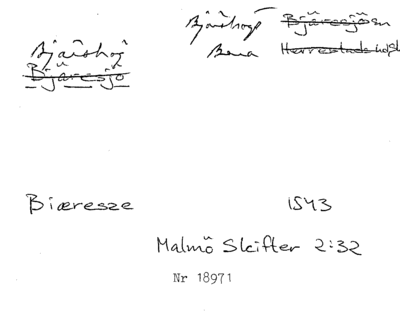 Bjärshög Bjäresjö sn
Bjärshög Bara Herrestads hd
Bjäresjö
Biæresze 1543
Malmö Skifter 2:32
Nr 18971